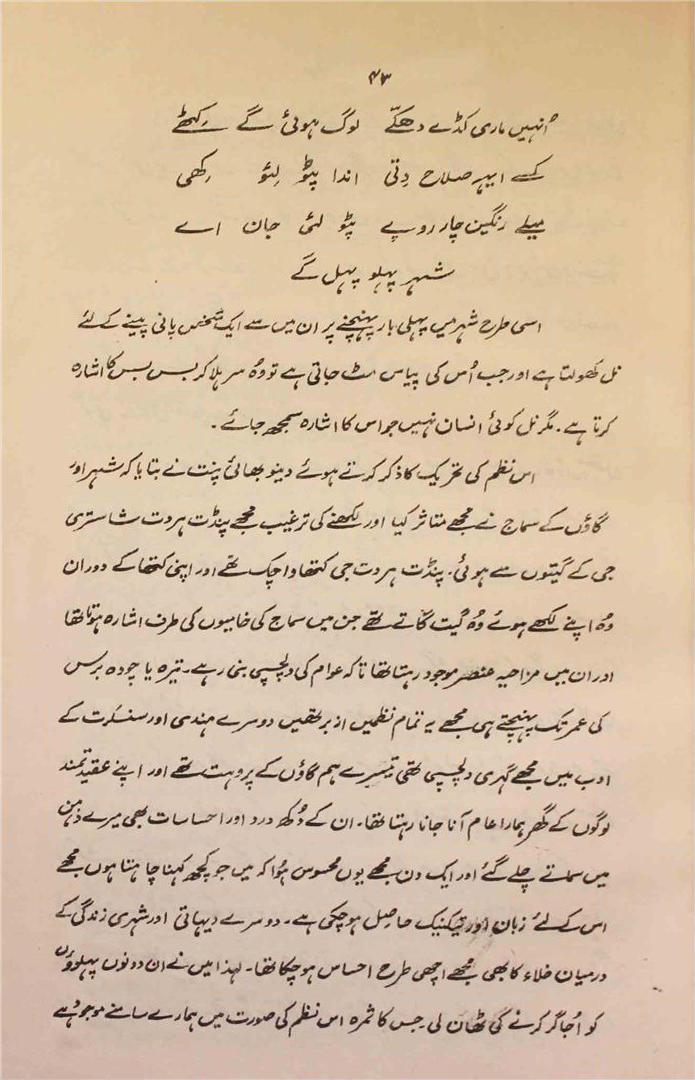 ۴۳
اُنہیں ماری کڈے دھکے لوگ ہوئی گے رکٹھے
کسے ایہہ صلاح دِتی اندا پٹو لئو رکھی
میلے رنگین چار روپے پٹو لئی جان اے
شہر پہلو پہل گے
اسی طرح شہر میں پہلی بار پہنچنے پر ان میں سے ایک شخص پانی پینے کے لئے
نل کھولتا ہے اور جب اُس کی پیاس مٹ جاتی ہے تو وُہ سر ہلا کر بس بس کا اشارہ
کرتا ہے۔ مگر نل کوئی انسان نہیں جو اس کا اشارہ سمجھ جائے۔
اس نظم کی تحریک کا ذکر کرتے ہوئے دینو بھائی پنت نے بتایا کہ شہر اور
گاؤں کے سماج نے مجھے متاثر کیا اور لکھنے کی ترغیب مجھے پنڈت ہردت شاستری
جی کے گیتوں سے ہوئی۔ پنڈت ہردت جی کتھا واچک تھے اور اپنی کتھا کے دوران
وُہ اپنے لکھے ہوئے وُہ گیت گاتے تھے جن میں سماج کی خامیوں کی طرف اشارہ ہوتا تھا
اور ان میں مزاحیہ عنصر موجود رہتا تھا تاکہ عوام کی دلچسپی بنی رہے۔ تیرہ یا چودہ برس
کی عمر تک پہنچتے ہی مجھے یہ تمام نظمیں ازبر تھیں دوسرے ہندی اور سنسکرت کے
ادب میں مجھے گہری دلچسپی تھی تیسرے ہم گاؤں کے پروہت تھے اور اپنے عقیدتمند
لوگوں کے گھر ہمارا عام آنا جانا رہتا تھا۔ ان کے دُکھ درد اور احساسات بھی میرے ذہن
میں سماتے چلے گئے اور ایک دن مجھے یوں محسوس ہُوا کہ میں جو کچھ کہنا چاہتا ہوں مجھے
اس کے لئے زبان اور تیکنیک حاصل ہو چکی ہے۔ دوسرے دیہاتی اور شہری زندگی کے
درمیان خلاء کا بھی مجھے اچھی طرح احساس ہو چکا تھا۔ لہذا میں نے ان دونوں پہلوؤں
کو اُجاگر کرنے کی ٹھان لی جس کا ثمرہ اس نظم کی صورت میں ہمارے سامنے موجود ہے